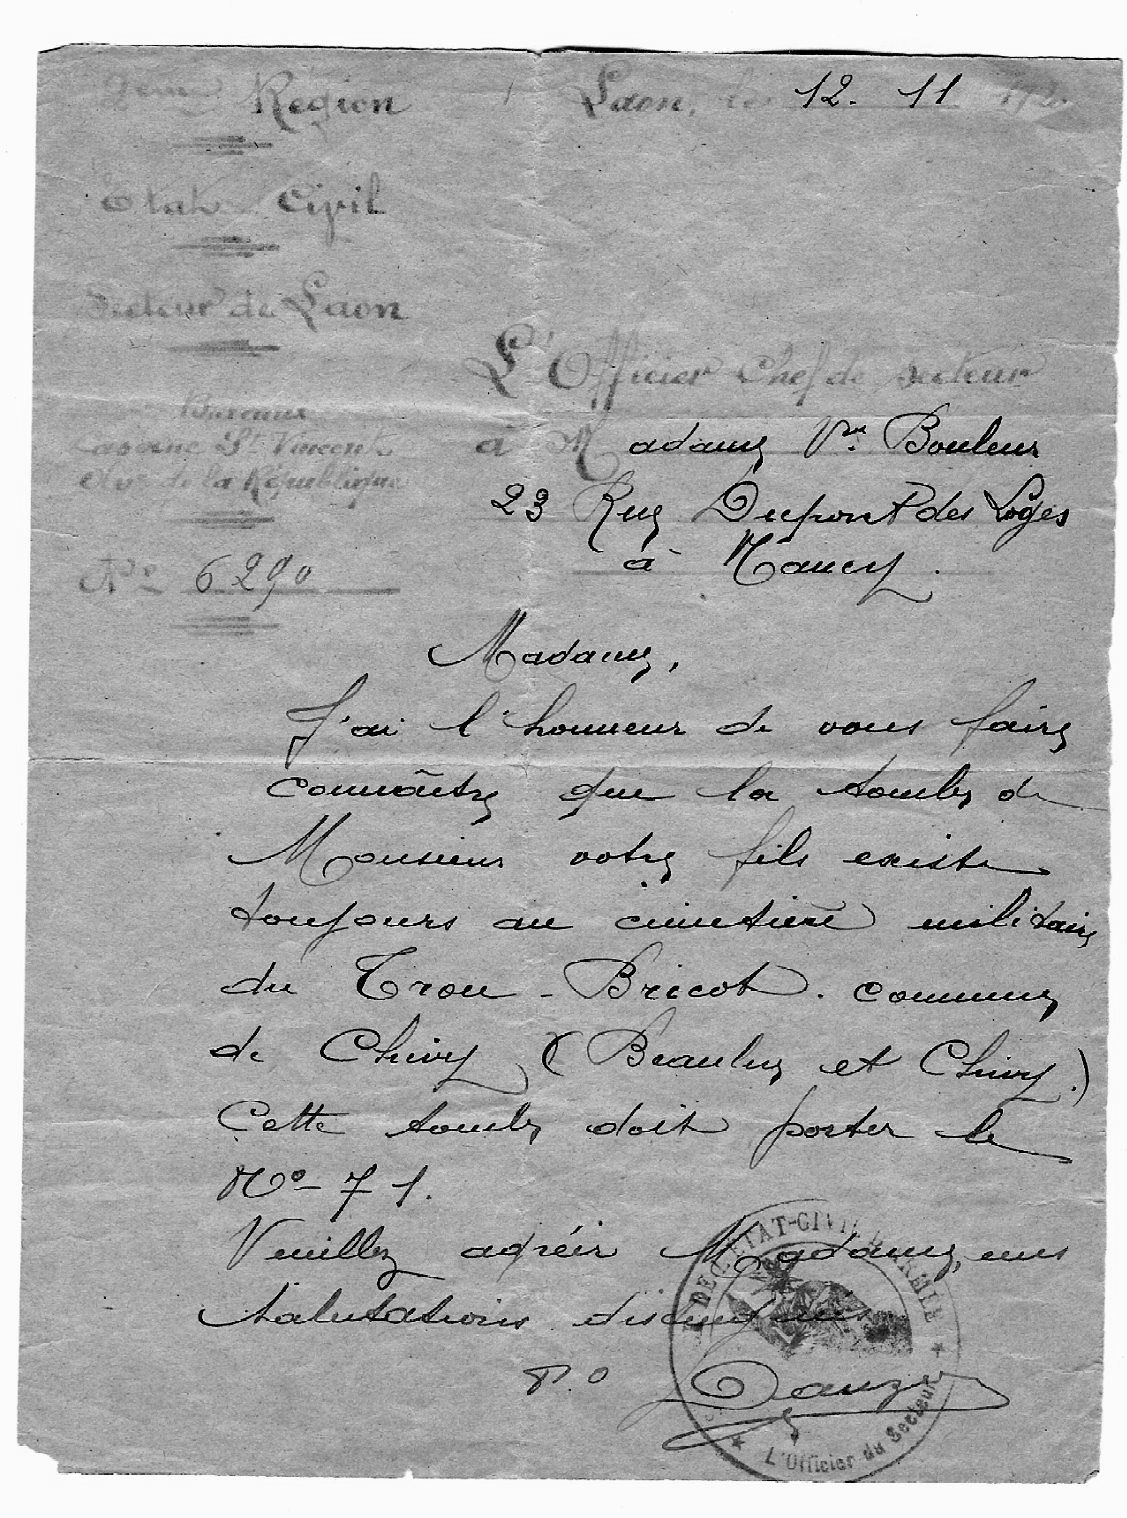 2ème Région
Laon, le 12. 11 192
Etat Civil
Secteur de Laon
L'Officier Chef de Secteur
Bureaux
Caserne St Vincent
de la République
à Madame Vve Bouleur
23 Rue Dupont des Loges
à Nancy.
No 6290
Madame,
J'ai l'honneur de vous faire
connaître que la tombe de
Monsieur votre fils existe
toujours au cimetière militaire
du Trou-Bricot. commune
de Chivy (Beaulne et Chivy.)
Cette tombe doit porter le
No- 71.
Veuillez agréer Madame, mes
salutations distinguées
P.O
DE L'ETAT-CIVIL
L'Officier du Secteur